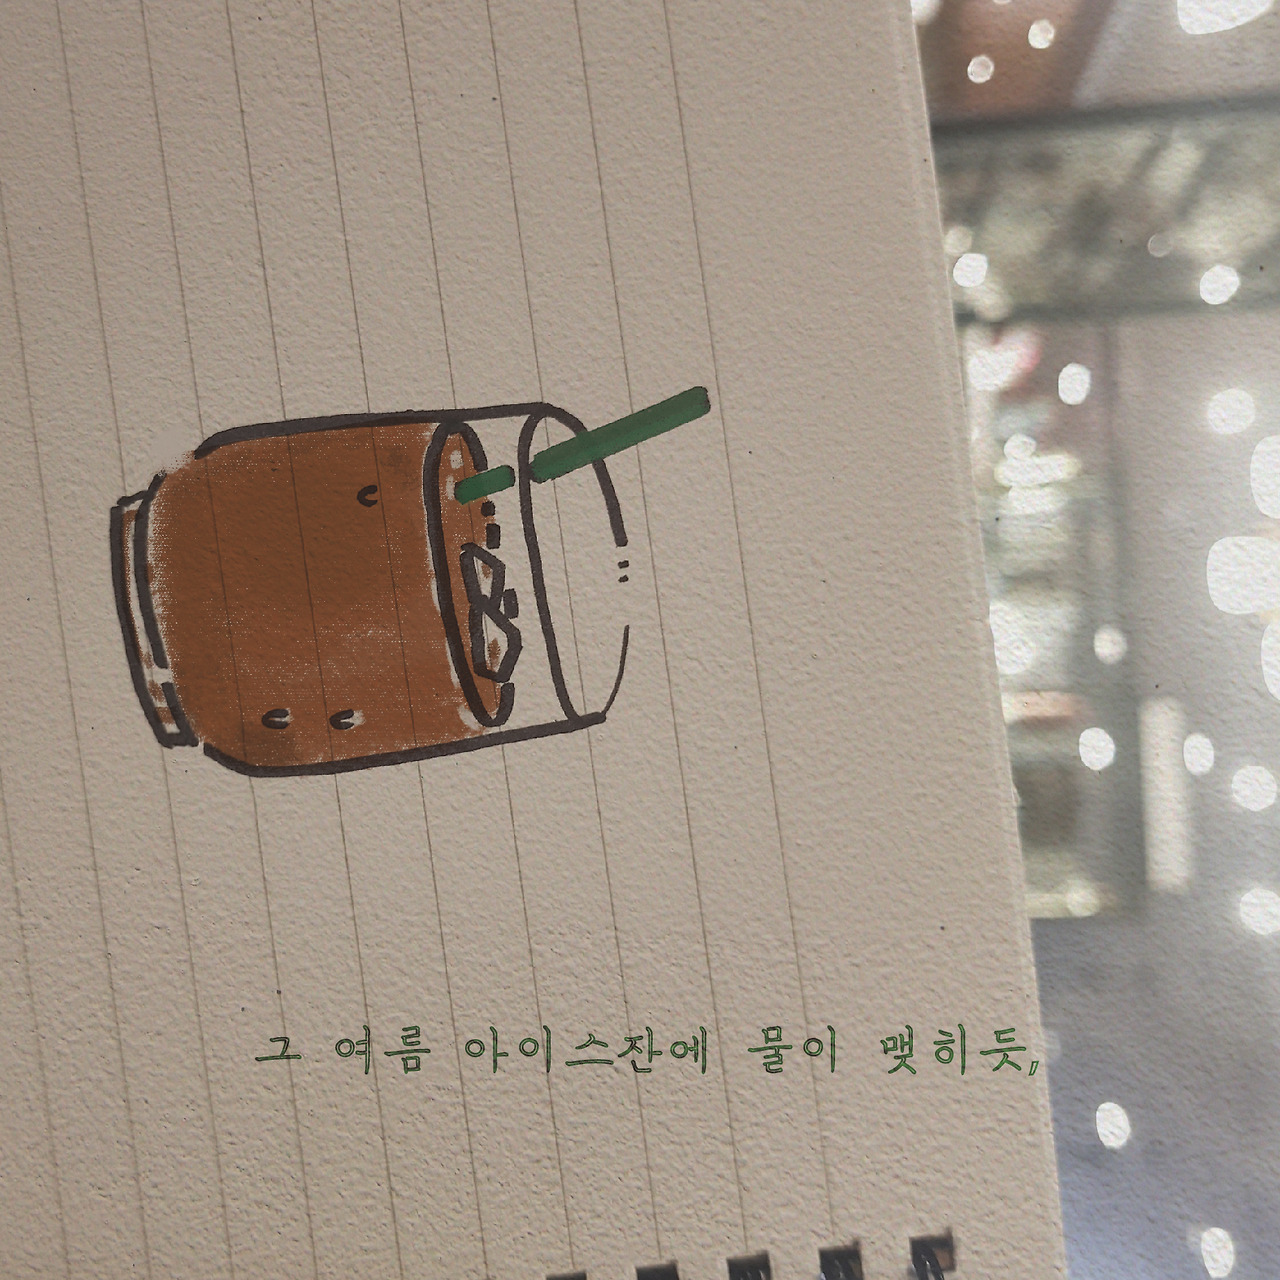 그 여름 아이스잔에 물이 맺히듯,